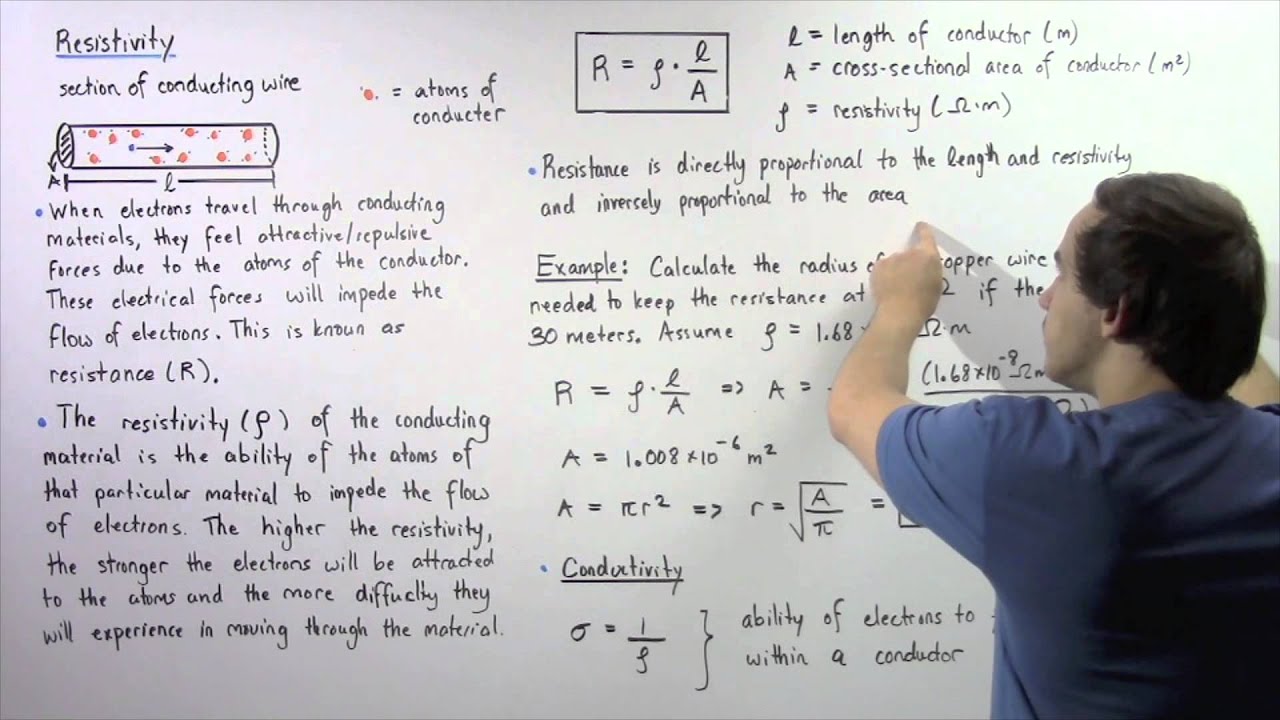 Resistivity
section of conducting wire
= atoms of
conducter
A
l
• When electrons travel through conducting
materials, they feel attractive/repulsive
forces due to the atoms of the conductor.
These electrical forces will impede the
flow of electrons. This is known as
resistance (R).
• The resistivity (ρ) of the conducting
material is the ability of the atoms of
that particular material to impede the flow
of electrons. The higher the resistivity,
the stronger the electrons will be attracted
to the atoms and the more diffuclty they
will experience in moving through the material.
R = ρ · l/A
l = length of conductor (m)
A = cross-sectional area of conductor (m²)
ρ = resistivity (Ω·m)
• Resistance is directly proportional to the length and resistivity
and inversely proportional to the area
Example: Calculate the radius opper wire
needed to keep the resistance at Ω if the
30 meters. Assume ρ = 1.68 Ω·m
R = ρ · l/A => A = (1.68×10⁻⁸Ωm
A = 1.008×10⁻⁶ m²
A = πr² => r = √(A/π) =
• Conductivity
σ = 1/ρ } ability of electrons to
within a conductor